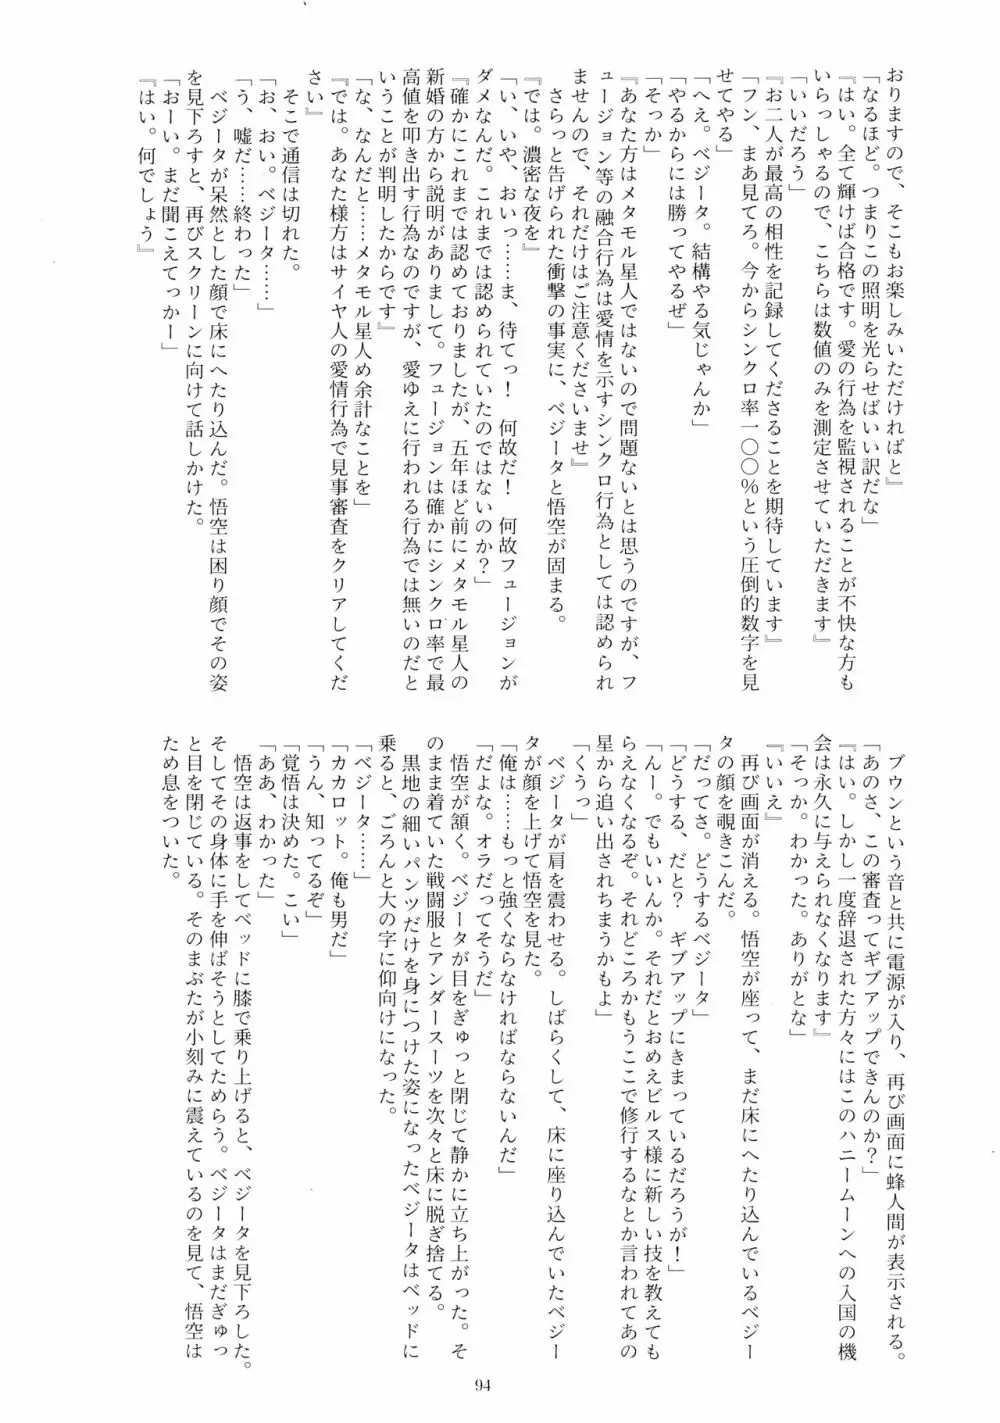 おりますので、そこもお楽しみいただければと』
「なるほど。つまりこの照明を光らせばいい訳だな」
『はい。全て輝けば合格です。愛の行為を監視されることが不快な方も
いらっしゃるので、こちらは数値のみを測定させていただきます』
「いいだろう」
『お二人が最高の相性を記録してくださることを期待しています』
「フン、まあ見てろ。今からシンクロ率一〇〇％という圧倒的数字を見
せてやる」
「へえ。ベジータ。結構やる気じゃんか」
「やるからには勝ってやるぜ」
「そっか」
『あなた方はメタモル星人ではないので問題ないとは思うのですが、フ
ュージョン等の融合行為は愛情を示すシンクロ行為としては認められ
ませんので、それだけはご注意くださいませ』
　さらっと告げられた衝撃の事実に、ベジータと悟空が固まる。
『では。濃密な夜を』
「い、いや、おいっ……ま、待てっ！　何故だ！　何故フュージョンが
ダメなんだ。これまでは認められていたのではないのか？」
『確かにこれまでは認めておりましたが、五年ほど前にメタモル星人の
新婚の方から説明がありまして。フュージョンは確かにシンクロ率で最
高値を叩き出す行為なのですが、愛ゆえに行われる行為では無いのだと
いうことが判明したからです』
「な、なんだと……メタモル星人め余計なことを」
『では。あなた様方はサイヤ人の愛情行為で見事審査をクリアしてくだ
さい』
　そこで通信は切れた。
「お、おい。ベジータ……」
「う、嘘だ……終わった」
　ベジータが呆然とした顔で床にへたり込んだ。悟空は困り顔でその姿
を見下ろすと、再びスクリーンに向けて話しかけた。
「おーい。まだ聞こえてっかー」
『はい。何でしょう』
　ブウンという音と共に電源が入り、再び画面に蜂人間が表示される。
「あのさ、この審査ってギブアップできんのか？」
『はい。しかし一度辞退された方々にはこのハニームーンへの入国の機
会は永久に与えられなくなります』
「そっか。わかった。ありがとな」
『いいえ』
　再び画面が消える。悟空が座って、まだ床にへたり込んでいるベジー
タの顔を覗きこんだ。
「だってさ。どうするベジータ」
「どうする、だと？　ギブアップにきまっているだろうが！」
「んー。でもいいんか。それだとおめえビルス様に新しい技を教えても
らえなくなるぞ。それどころかもうここで修行するなとか言われてあの
星から追い出されちまうかもよ」
「くうっ」
　ベジータが肩を震わせる。しばらくして、床に座り込んでいたベジー
タが顔を上げて悟空を見た。
「俺は……もっと強くならなければならないんだ」
「だよな。オラだってそうだ」
　悟空が頷く。ベジータが目をぎゅっと閉じて静かに立ち上がった。そ
のまま着ていた戦闘服とアンダースーツを次々と床に脱ぎ捨てる。
　黒地の細いパンツだけを身につけた姿になったベジータはベッドに
乗ると、ごろんと大の字に仰向けになった。
「ベジータ……」
「カカロット。俺も男だ」
「うん、知ってるぞ」
「覚悟は決めた。こい」
「ああ、わかった」
　悟空は返事をしてベッドに膝で乗り上げると、ベジータを見下ろした。
そしてその身体に手を伸ばそうとしてためらう。ベジータはまだぎゅっ
と目を閉じている。そのまぶたが小刻みに震えているのを見て、悟空は
ため息をついた。
94